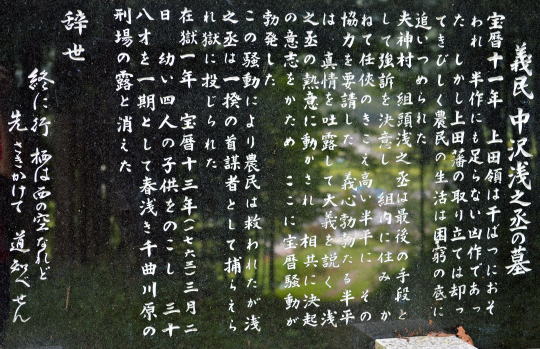 義民 中沢浅之丞の墓
宝暦十一年 上田領は干ばつにおそ
われ 半作にも足らない凶作であっ
た しかし上田藩の取り立ては却っ
てきびしく農民の生活は困窮の底に
追いつめられた
夫神村 組頭浅之丞は最後の手段と
して強訴を決意し 組内に住み か
ねて任侠のきこえ高い半平に その
協力を要請した 義心勃勃たる半平
は 真情を吐露して大義を説く 浅
之丞の熱意に動かされ 相共に決起
の意志をかため ここに宝暦騒動が
勃発した
この騒動により農民は救われたが浅
之丞は一揆の首謀者として捕らえら
れ獄に投じられた
在獄一年 宝暦十三年(一七六三)三月二
日 幼い四人の子供をのこし 三十
八才を一期として春浅き千曲川原の
刑場の露と消えた
辞世
終に行 栖は西空なれど
先 さきかけて 道知べせん